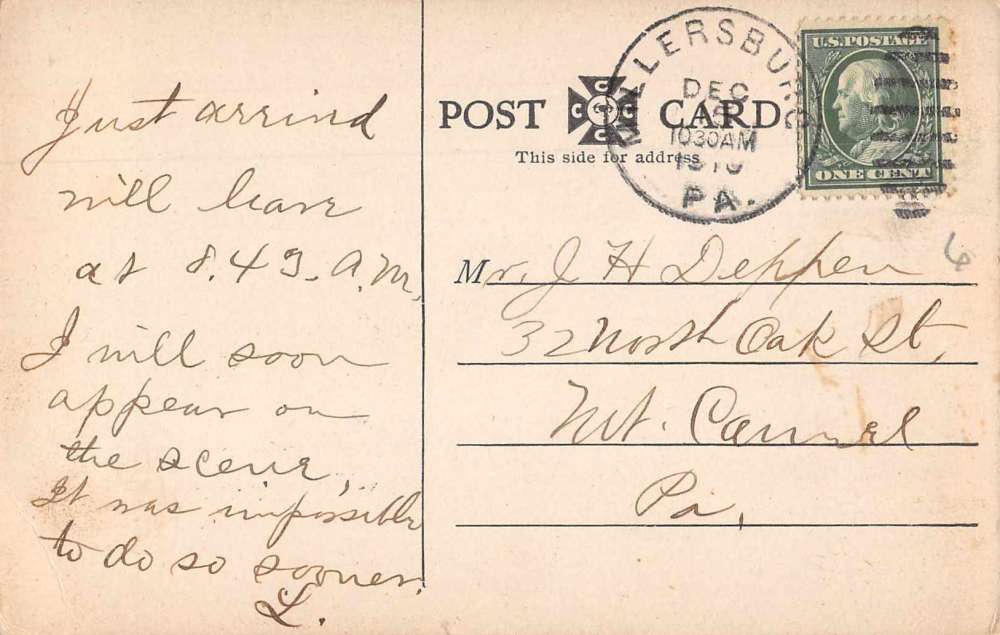 Just arrived
will leave
at 8.43. A.M.
I will soon
appear on
the scene,
It was impossible
to do so sooner.
L.
POST CARD
This side for address
MILLERSBURG
DEC
1030AM
1910
PA.
U.S. POSTAGE
ONE CENT
Mr. J H Deppen
32 North Oak St,
Mt. Carmel
Pa,
6